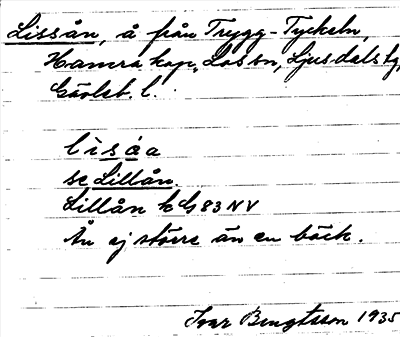 Lissån, å från Trygg-Tyckeln,
Hamra kap., Los sn, Ljusdals tg,
Gävleb. l.
lisåa
se Lillån.
Lillån k G83 NV
Ån ej större än en bäck.
Ivar Bengtsson 1935